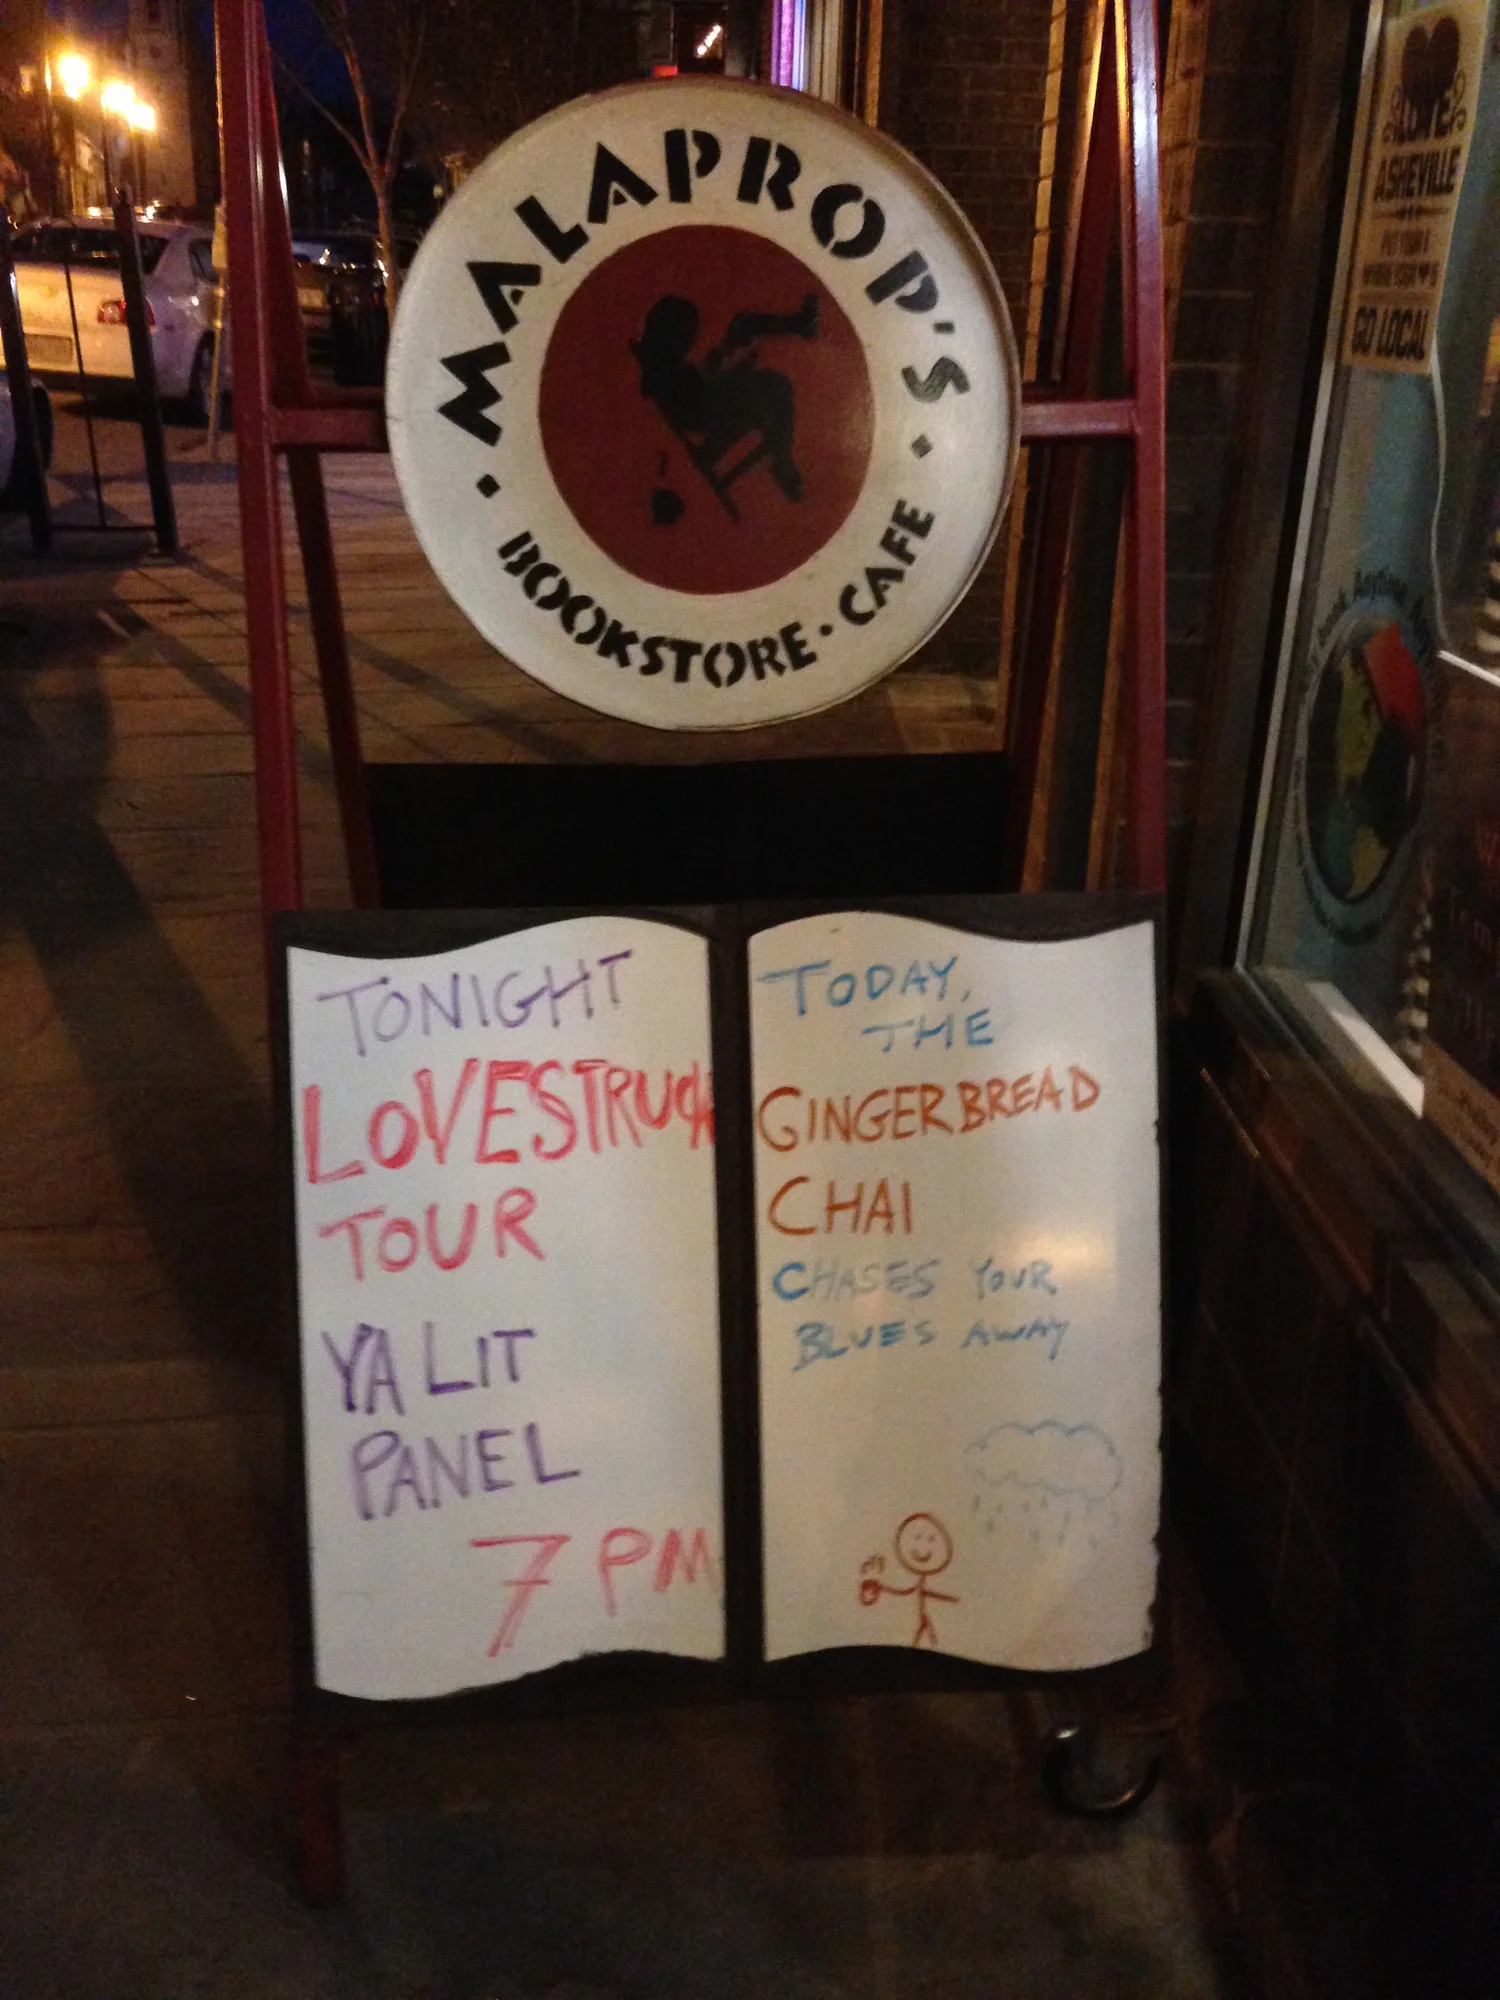 MALAPROP'S
BOOKSTORE · CAFE
TONIGHT
LOVESTRUCK
TOUR
YA LIT
PANEL
7 PM
TODAY,
THE
GINGERBREAD
CHAI
CHASES YOUR
BLUES AWAY
LOVE
ASHEVILLE
GO LOCAL